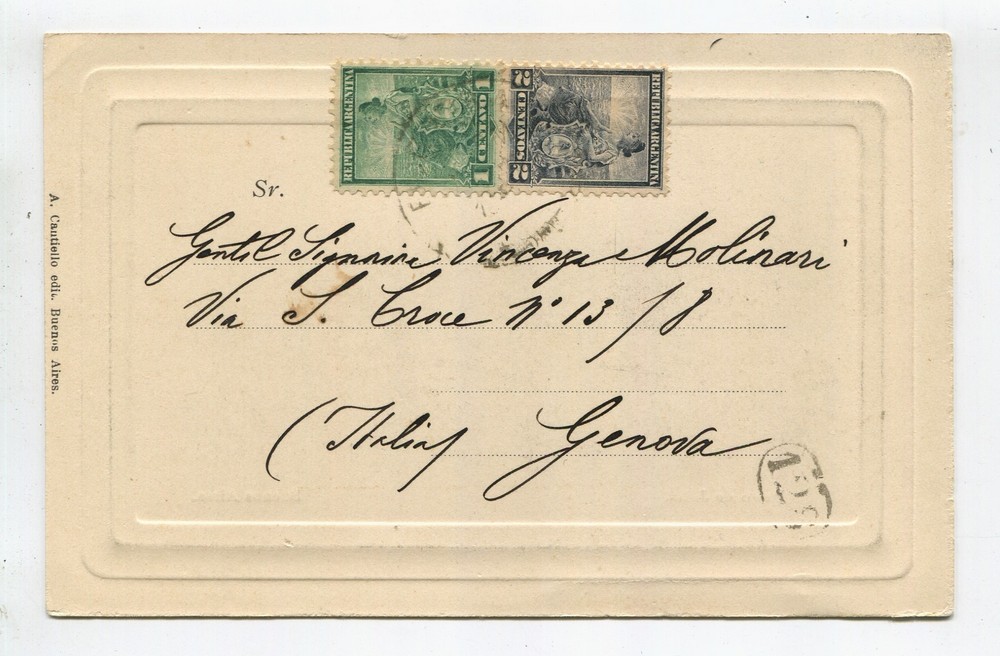 REPUBLICA ARGENTINA
1 CENTAVO 1
2 CENTAVOS 2
REPUBLICA ARGENTINA
Sr.
Gentil Signorina Vincenza Molinari
Via S. Croce N° 13/8
(Italia) Genova
A. Cantiello edit. Buenos Aires.